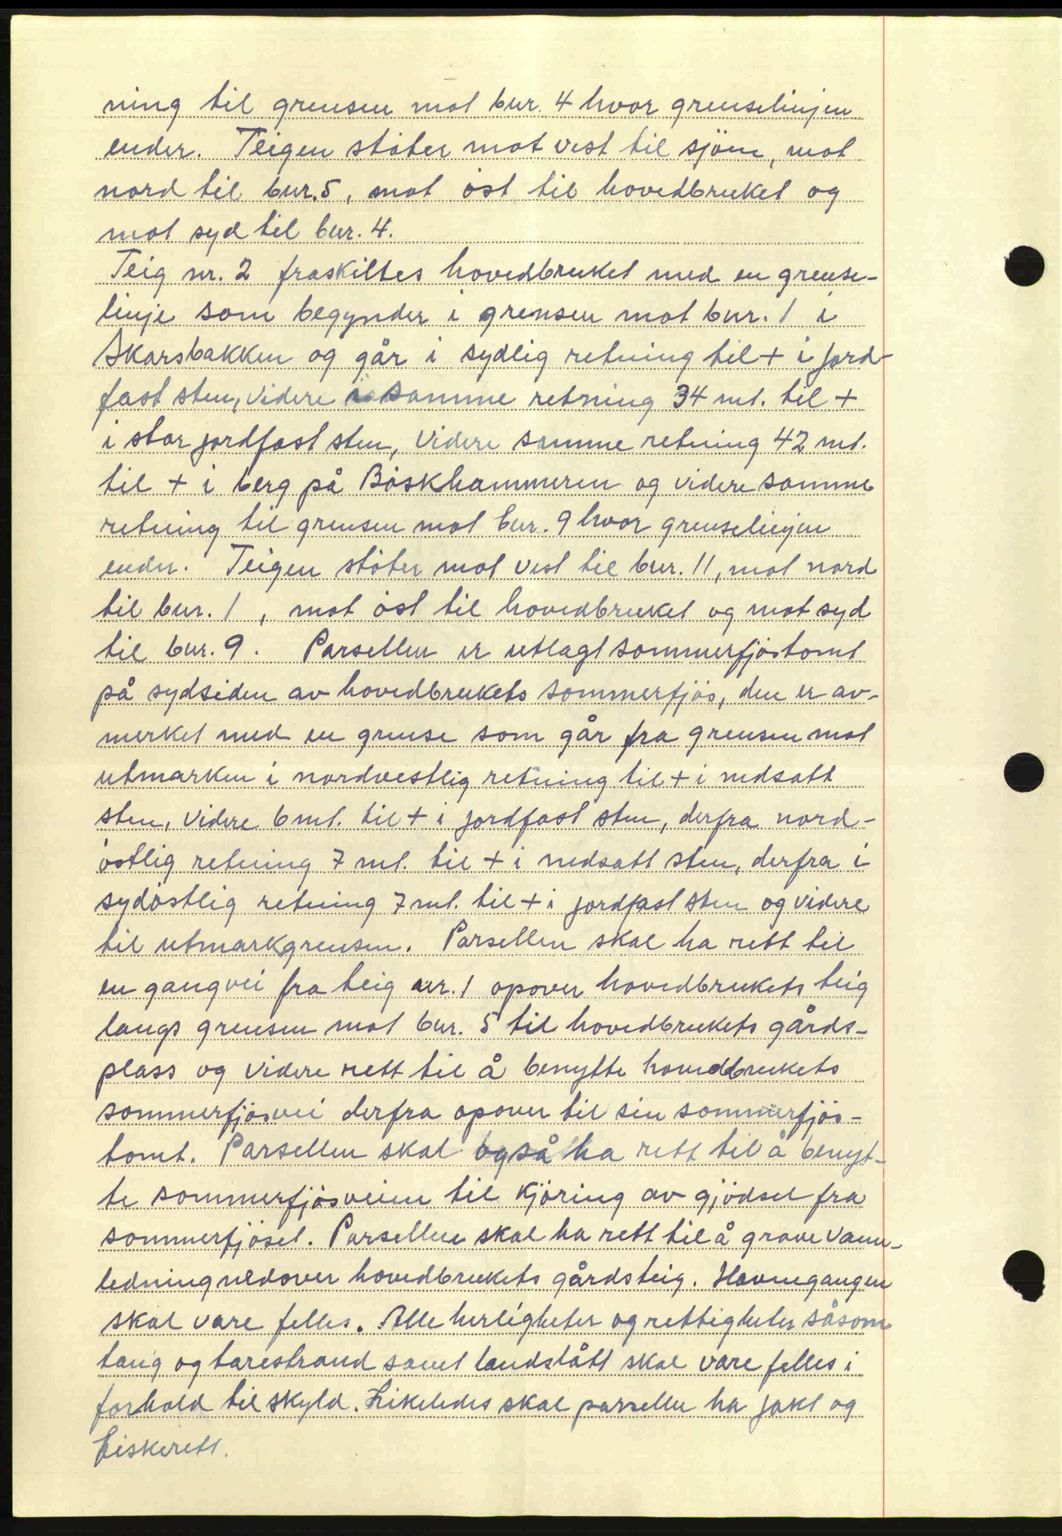 ning til grensen mot bnr. 4 hvor grenselinjen
ender. Teigen støter mot vest til sjöen, mot
nord til bnr. 5, mot öst til hovedbruket og
mot syd til bnr. 4.
Teig nr. 2 fraskiltes hovedbruket med en grense-
linje som begynder i grensen mot bnr. 1 i
Skarsbakken og går i sydlig retning til + i jord-
fast sten, videre i samme retning 34 mt. til +
i stor jordfast sten, videre samme retning 42 mt.
til + i berg på Båskhammeren og videre samme
retning til grensen mot bnr. 9 hvor grenselinjen
ender. Teigen stöter mot vest til bnr. 11, mot nord
til bnr. 1, mot öst til hovedbruket og mot syd
til bnr. 9. Parsellen er utlagt sommerfjöstomt
på sydsiden av hovedbrukets sommerfjös, den er av-
merket med en grense som går fra grensen mot
utmarken i nordvestlig retning til + i nedsatt
sten, videre 6 mt. til + i jordfast sten, derfra nord-
östlig retning 7 mt. til + i nedsatt sten, derfra i
sydöstlig retning 7 mt. til + i jordfast sten og videre
til utmarkgrensen. Parsellen skal ha rett til
en gangvei fra teig nr. 1 opover hovedbrukets teig
langs grensen mot bnr. 5 til hovedbrukets gårds-
plass og videre rett til å benytte hovedbrukets
sommerfjösvei derfra opover til sin sommerfjös-
tomt. Parsellen skal også ha rett til å benyt-
te sommerfjösveien til kjöring av gjödsel fra
sommerfjöset. Parsellen skal ha rett til å grave vann-
ledning nedover hovedbrukets gårdsteig. Havnegangen
skal være felles. Alle herligheter og rettigheter såsom
tang og tarestrand samt landslått skal være felles i
forhold til skyld. Likeledes skal parsellen ha jakt og
fiskerett.